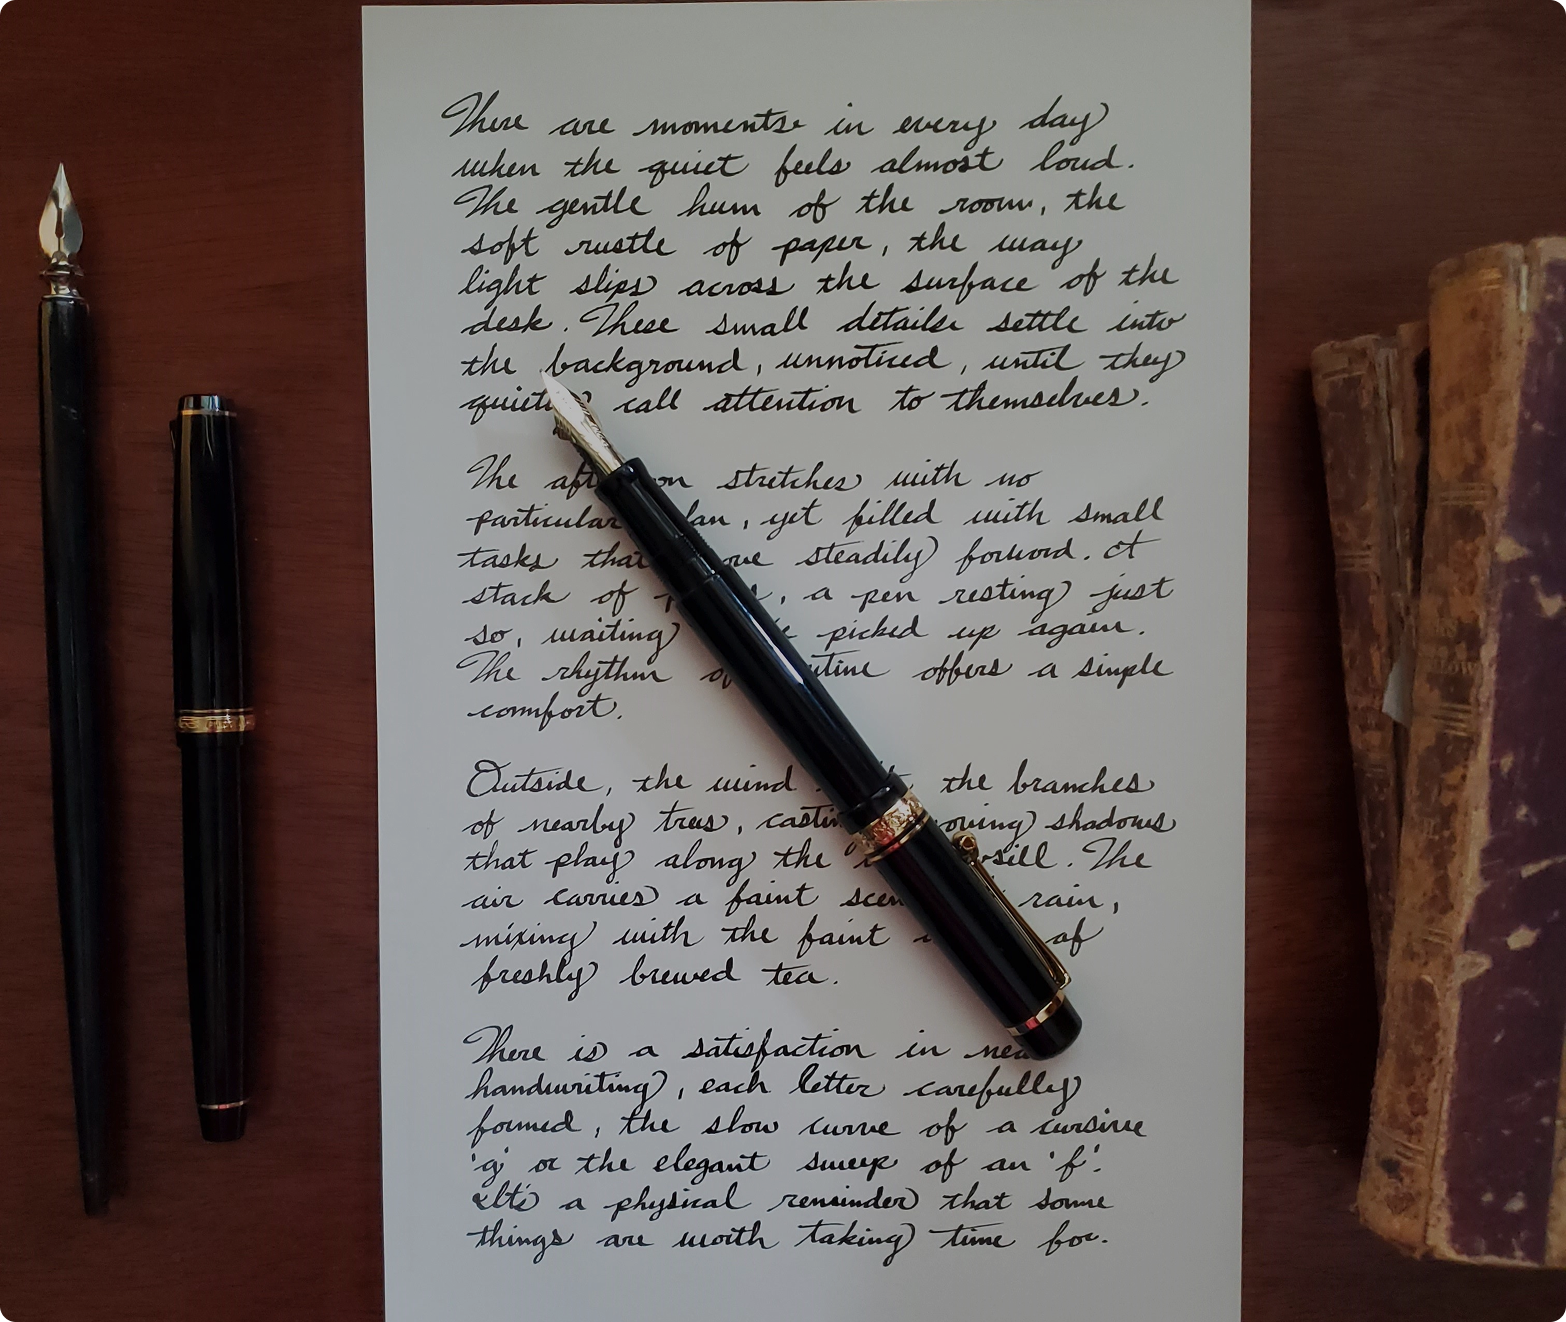 There are moments in every day
when the quiet feels almost loud.
The gentle hum of the room, the
soft rustle of paper, the way
light slips across the surface of the
desk. These small details settle into
the background, unnoticed, until they
call attention to themselves.
The stretches with no
particular yet filled with small
tasks that steadily forward. A
stack of , a pen resting just
so, waiting picked up again.
The rhythm offers a simple
comfort.
Outside, the wind the branches
of nearby trees, shadows
that play along the The
air carries a faint rain,
mixing with the faint of
freshly brewed tea.
There is a satisfaction in
handwriting, each letter carefully
formed, the slow curve of a cursive
'g' or the elegant sweep of an 'f'.
It's a physical reminder that some
things are worth taking time for.